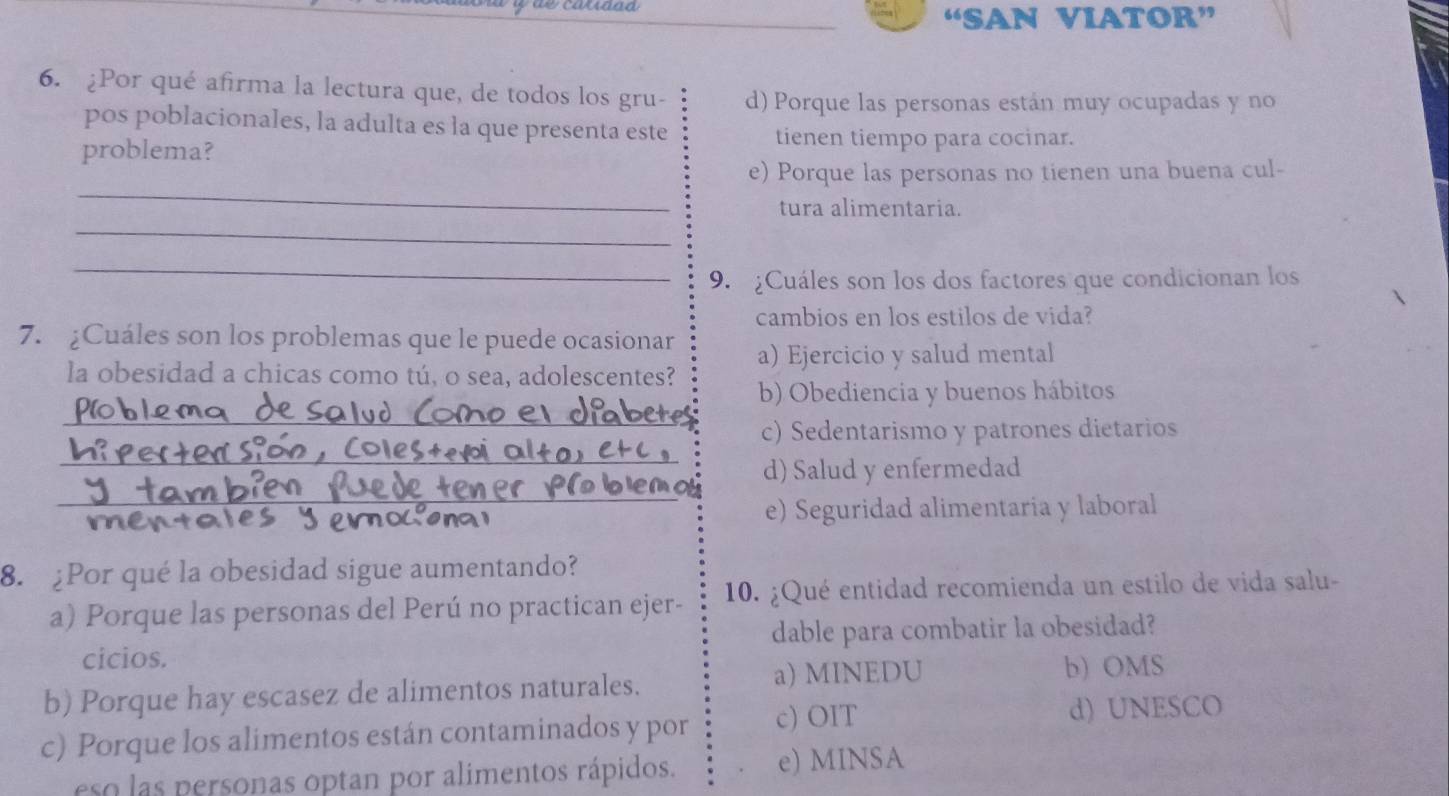 y de calidad
“SAN VIATOR”
6. ¿Por qué afirma la lectura que, de todos los gru-
pos poblacionales, la adulta es la que presenta este
problema?
7. ¿Cuáles son los problemas que le puede ocasionar
la obesidad a chicas como tú, o sea, adolescentes?
problema de salud como el diabetes,
hipertensión, colesterol alto, etc,
y tambien puede tener problemas
mentales y emocional
8. ¿Por qué la obesidad sigue aumentando?
a) Porque las personas del Perú no practican ejer-
cicios.
b) Porque hay escasez de alimentos naturales.
c) Porque los alimentos están contaminados y por
eso las personas optan por alimentos rápidos.
d) Porque las personas están muy ocupadas y no
tienen tiempo para cocinar.
e) Porque las personas no tienen una buena cul-
tura alimentaria.
9. ¿Cuáles son los dos factores que condicionan los
cambios en los estilos de vida?
a) Ejercicio y salud mental
b) Obediencia y buenos hábitos
c) Sedentarismo y patrones dietarios
d) Salud y enfermedad
e) Seguridad alimentaria y laboral
10. ¿Qué entidad recomienda un estilo de vida salu-
dable para combatir la obesidad?
a) MINEDU b) OMS
c) OIT d) UNESCO
e) MINSA